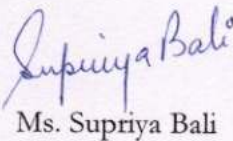 Supriya Bali
Ms. Supriya Bali